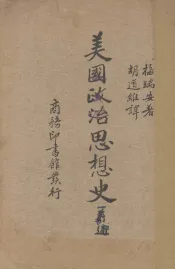 梅瑞安著
胡道維譯
美國政治思想史
商務印書館發行